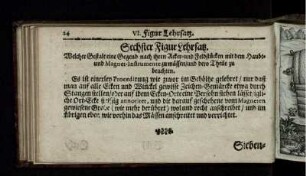 24 VI. Figur Lehrsatz.
Sechster Figur Lehrsatz.
Welcher Gestalt eine Gegend nach ihren Acker- und Feldstücken mit dem Hand-
und Magnet-Instrumente zu mässen und dero Theile zu
beachten.
ES ist einerley Procedirung wie zuvor im Gehöltze gelehret / nur daß
man auf alle Ecken und Winckel gewisse Zeichen Gemärcke etwa durch
Stangen stellen / oder auf dem Ecken-Orte eine Persohn stehen lassen
Ort-Ecke annotiret, und die darauf geschehene vom Magneten
gewiesene Grade (wie mehr berühret) wohl und recht auschreibet / und im
übrigen eben wie vorhin das Mässen anschreitet und verrichtet.
Sieben-